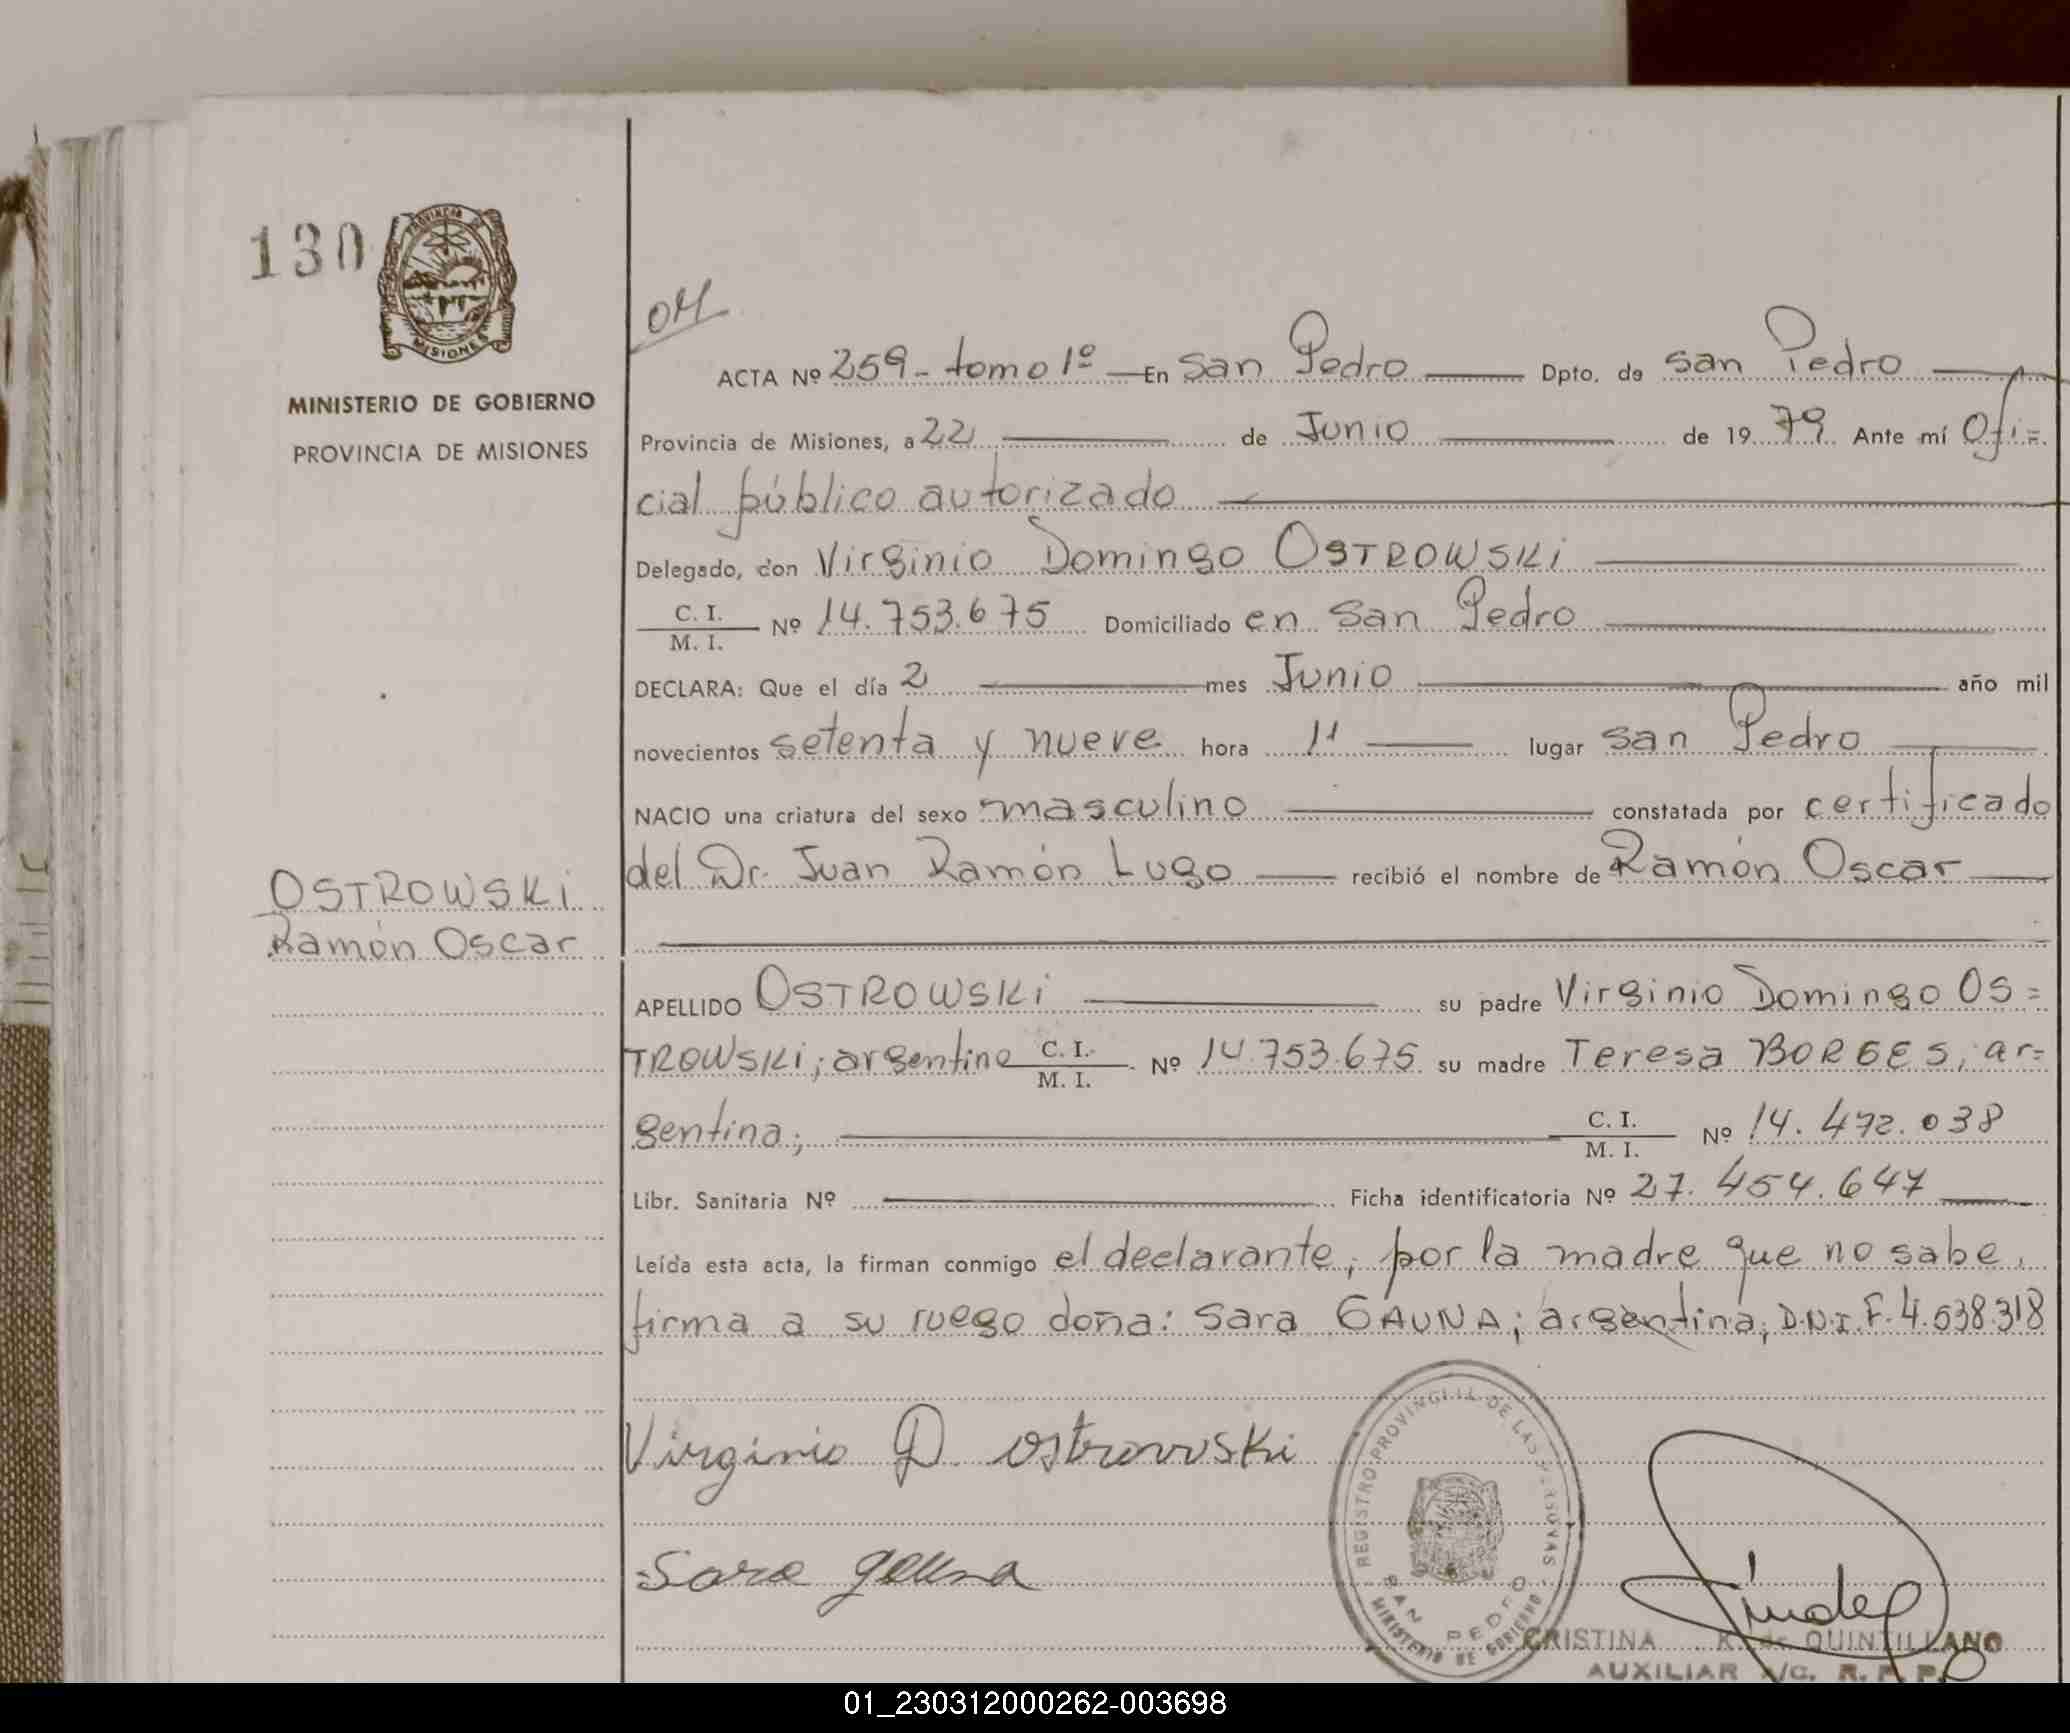 130
PROVINCIA DE
MISIONES
MINISTERIO DE GOBIERNO
PROVINCIA DE MISIONES
OSTROWSKi
Ramón Oscar
ACTA Nº 259 - tomo 1º — En San Pedro — Dpto. de San Pedro —
Provincia de Misiones, a 22 — de Junio — de 19 79 Ante mí Ofi=
cial público autorizado —
Delegado, don Virginio Domingo OSTROWSKi —
C. I.
M. I. Nº 14.753.675 Domiciliado en San Pedro —
DECLARA: Que el día 2 — mes Junio — año mil
novecientos setenta y nueve hora 11 — lugar San Pedro —
NACIO una criatura del sexo masculino — constatada por certificado
del Dr. Juan Ramón Lugo — recibió el nombre de Ramón Oscar —
APELLIDO OSTROWSKi — su padre Virginio Domingo OS=
TROWSKi; argentino C. I. M. I. Nº 14.753.675 su madre Teresa BORGES; ar=
gentina; — C. I. M. I. Nº 14.472.038
Libr. Sanitaria Nº — Ficha identificatoria Nº 27.454.647 —
Leída esta acta, la firman conmigo el declarante, por la madre que no sabe,
firma a su ruego doña: Sara GAUNA; argentina; D.N.I. F. 4.638.318
Virginio D. Ostrowski
Sara Gauna
REGISTRO PROVINCIAL DE LAS PERSONAS
SAN PEDRO
MINISTERIO DE GOBIERNO
CRISTINA K. de QUINTILLANO
AUXILIAR A/C. R. P. P.
01_230312000262-003698